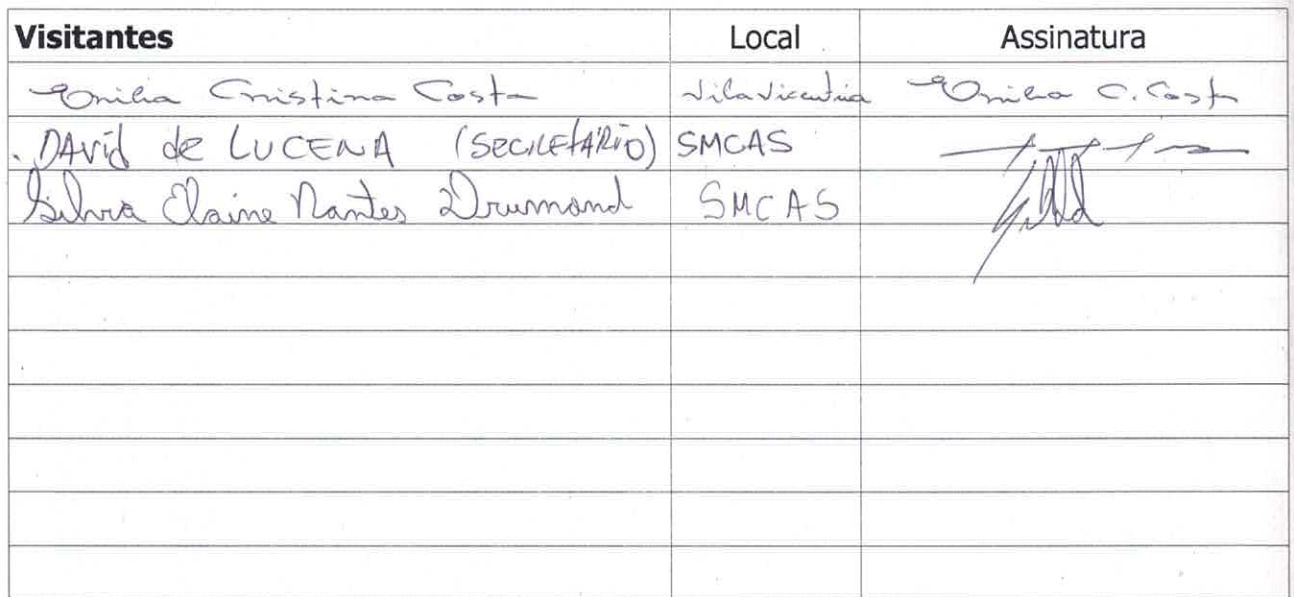 Visitantes Local Assinatura
Emilia Cristina Costa Vila Vicentina Emilia C. Costa
. DAVid de LUCENA (SECRETÁRiO) SMCAS
Silvia Elaine Nantes Drumond SMCAS